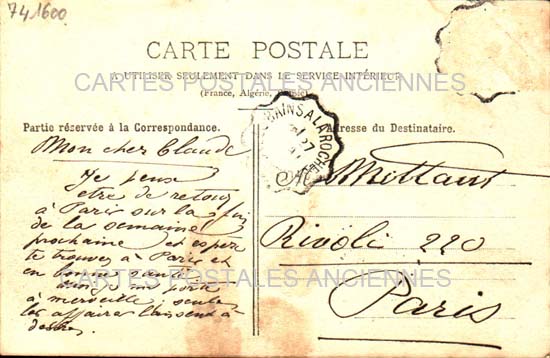 741600
CARTE POSTALE
A UTILISER SEULEMENT DANS LE SERVICE INTÉRIEUR
CARTES POSTALES ANCIENNES
(France, Algérie, Tunisie)
BAINS A LA ROCHE
27
Partie réservée à la Correspondance.
Adresse du Destinataire.
Mon cher Claude
Je pense
être de retour
à Paris sur la fin
de la semaine
prochaine et espère
te trouver à Paris et
en bonne santé
à merveille, seules
les affaires laissent à
desirer.
Mittant
Rivoli 220
Paris
CARTES POSTALES ANCIENNES